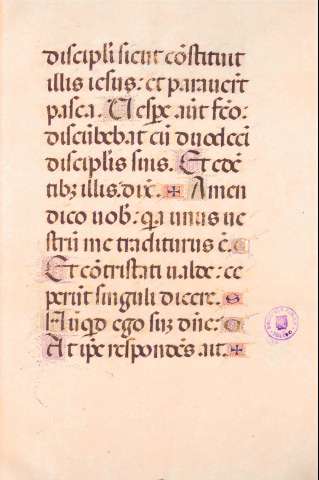 discipli sicut cõstituit
illis iesus: et parauert̃
pasca. Uespe aut̃ fc̃o:
discũbebat cũ duodeci
discipl̃is suis. Et edẽ
tibꝫ illis. dix̃. Amen
dico uob̃: q̃a unus ue
strũ me traditurus ẽ.
Et cõtristati ualde: ce
perũt singuli dicere.
Nũq̃d ego sũ dñe:
At ip̃e respondẽs ait.